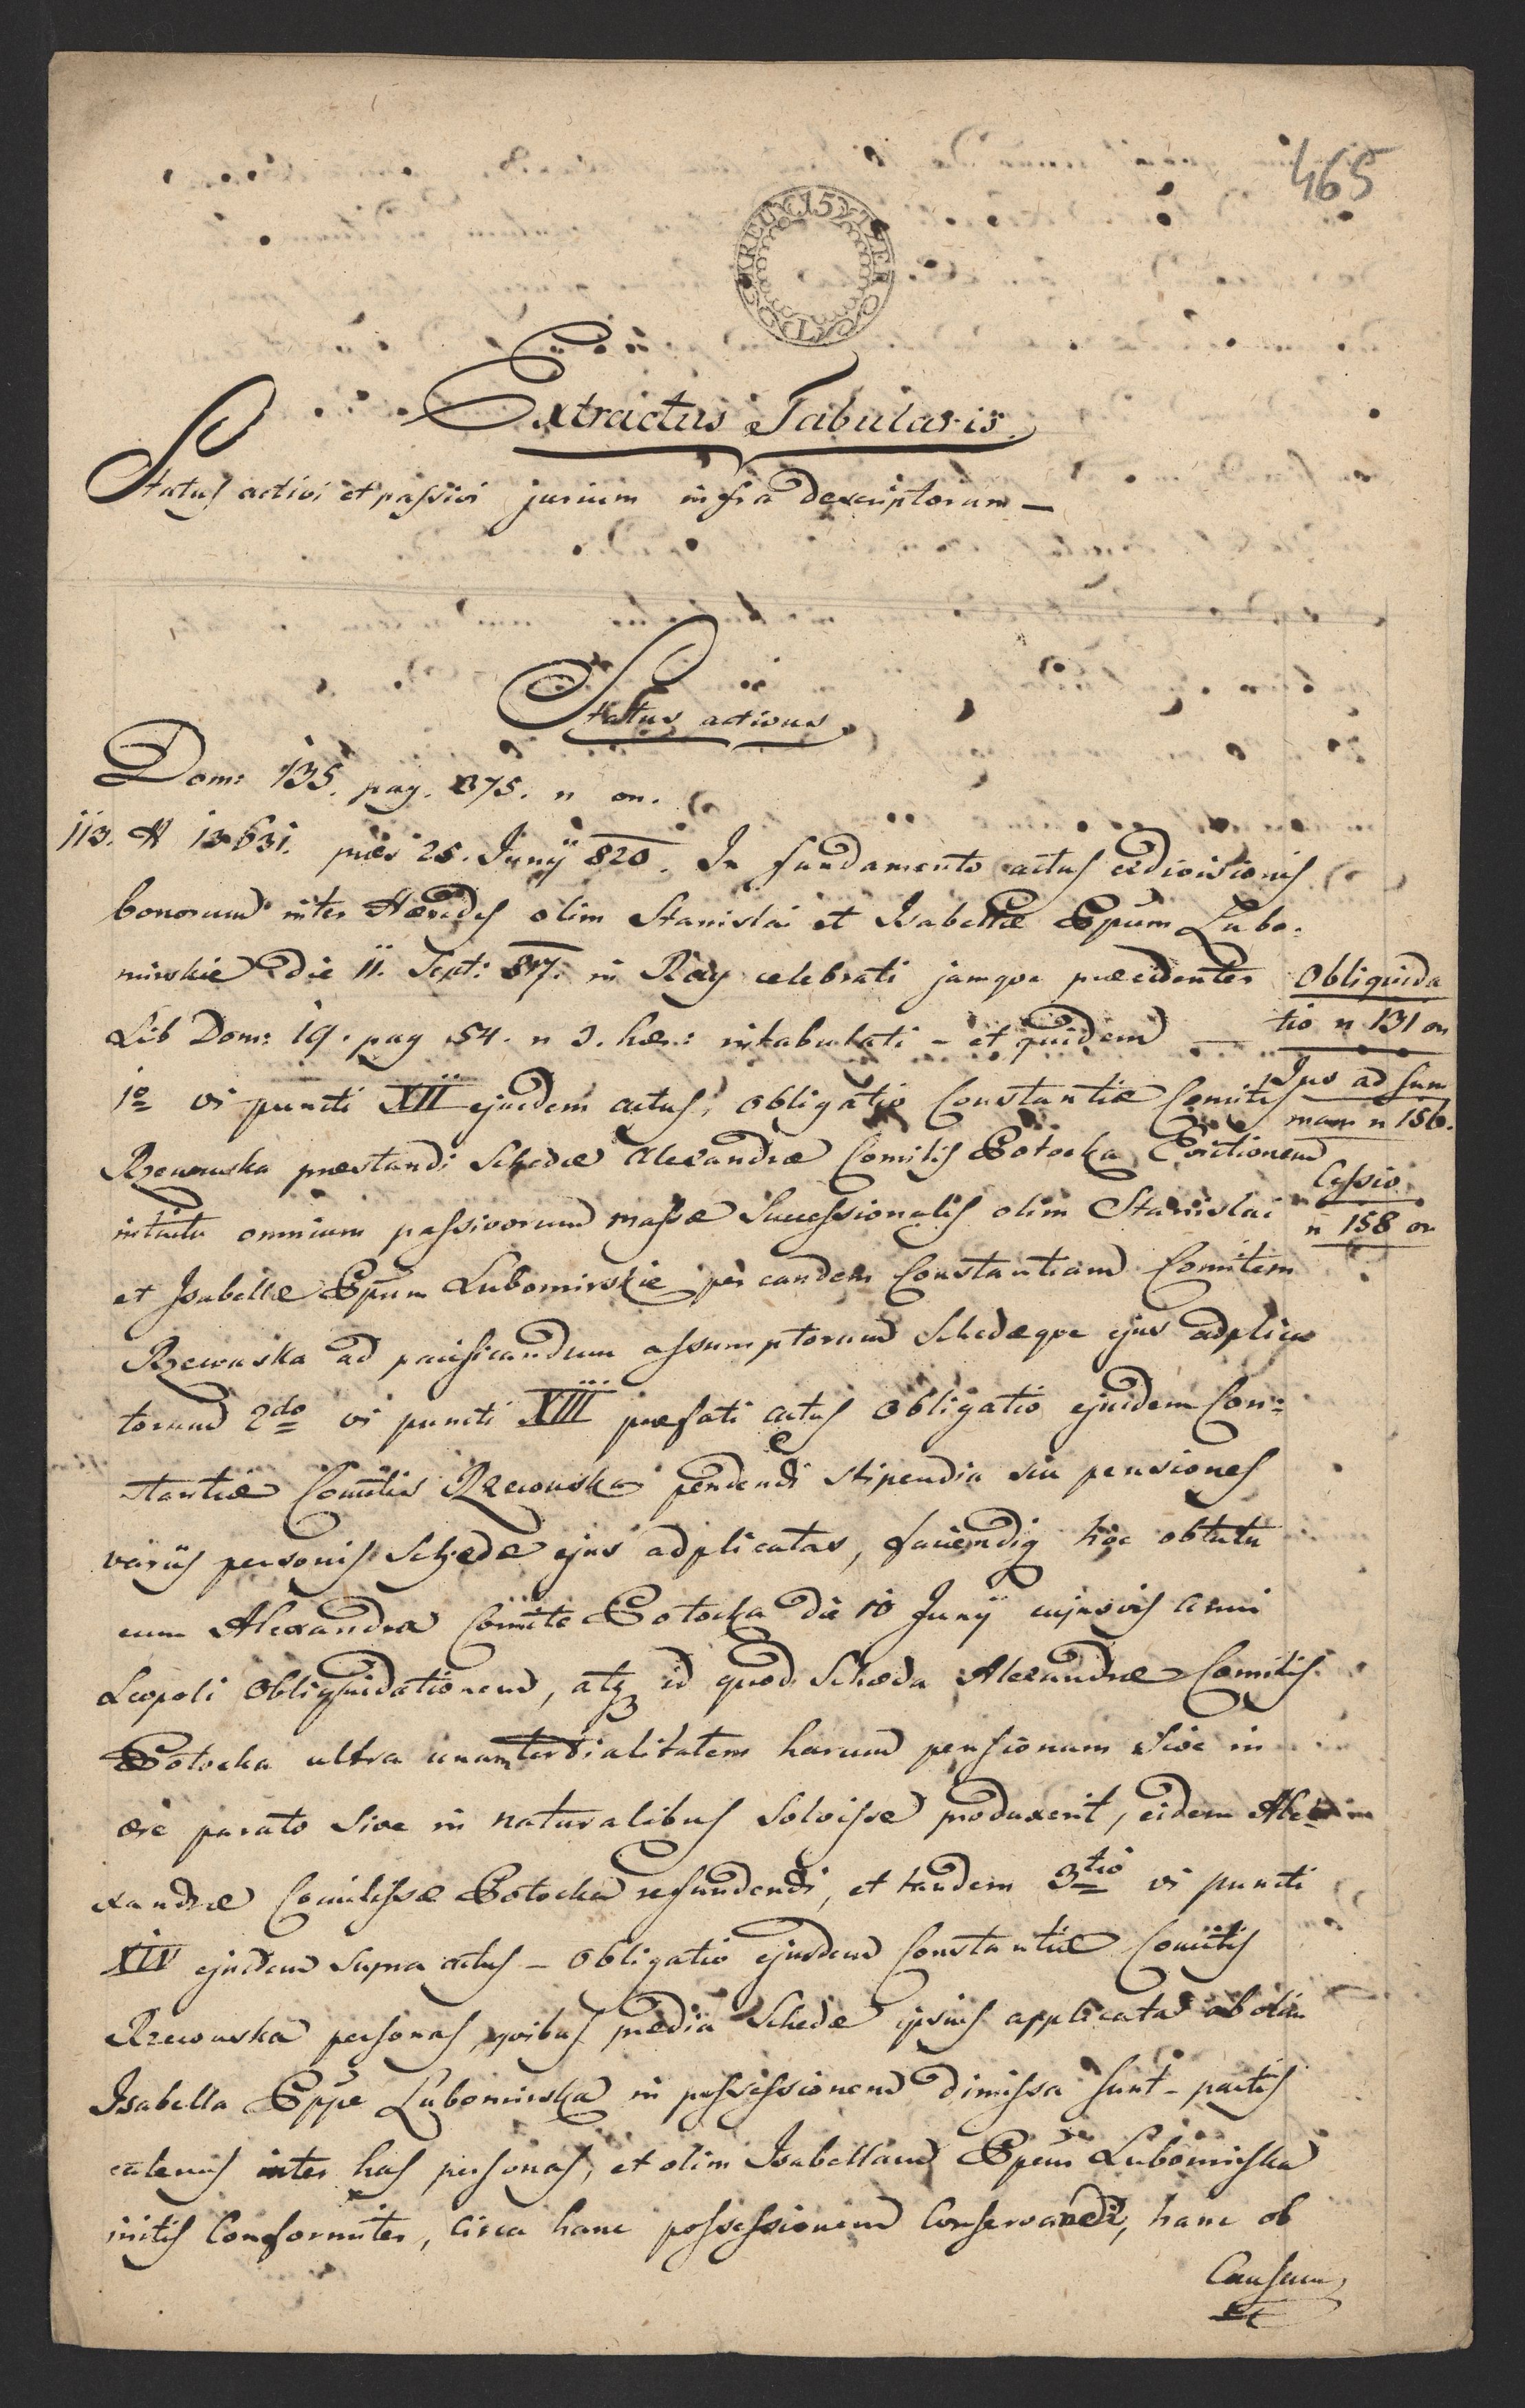 465
15 KREUTZER C. OCTO
Extractus Tabularis
Status activi et passivi jurium infra descriptorum —
Status activus
Dom: 135. pag. 375. n on.
113. N 13631. præs 25. Junÿ 820. In fundamento actus exdivisionis
bonorum inter Hæredes olim Stanislai et Isabellæ Ppum Lubo-
mirskie die 11. Sept: 817. in Ray celebrati jamqve præcedenter
Lib Dom: 19. pag 54. n 3. hær: intabulati – et quidem —
Obliquida
tio n 131 on
1o vi puncti XII ejusdem actus, obligatio Constantiæ Comitis
Jus ad sum
mam n 156.
Rzewuska præstandi Schedæ Alexandræ Comitis Potocka Evictionem
Cessio
n 158 on
intuitu omnium passivorum massæ Successionalis olim Stanislai
et Isabellæ Ppum Lubomirskie per eandem Constantiam Comitem
Rzewuska ad pacificandum assumptorum Schedæqve ejus adplica
torum 2do vi puncti XIII præfati actus obligatio ejusdem Con-
stantiæ Comitis Rzewuska pendendi stipendia seu pensiones
variis personis Schedæ ejus adplicatas, faciendiq hoc obtutu
cum Alexandra Comite Potocka die 10 Junÿ cujusvis anni
Leopoli Obliquidationem, atq id quod Scheda Alexandræ Comitis
Potocka ultra unam tertialitatem harum pensionum sive in
ære parato sive in naturalibus solvisse produxerit, eidem Ale-
xandræ Comitissæ Potocka refundendi, et tandem 3tio vi puncti
XIV ejusdem supra actus – obligatio ejusdem Constantiæ Comitis
Rzewuska personas, qvibus prædia Schedæ ipsius applicata ab olim
Isabella Ppe Lubomirska in possessionem dimissa sunt – pactis
eatenus inter has personas, et olim Isabellam Ppem Lubomirska
initis Conformiter, circa hanc possessionem Conservandi, hanc ob
Causam